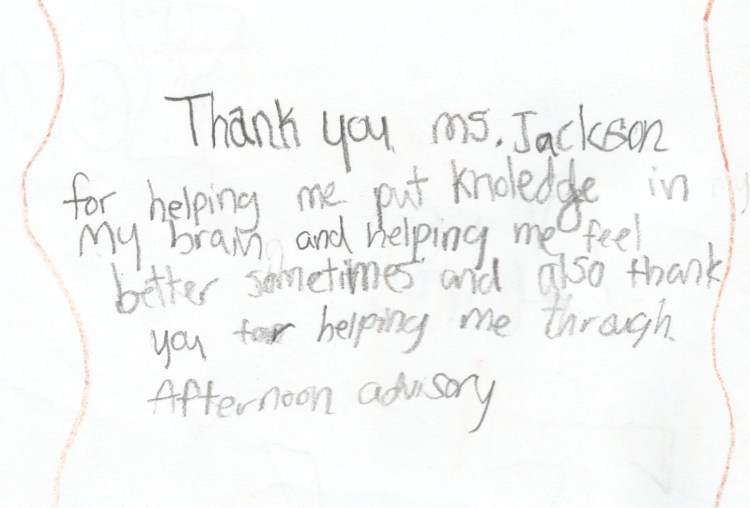 Thank you ms. Jackson
for helping me put knoledge in
My brain and helping me feel
better sometimes and also thank
you for helping me through
Afternoon advisory